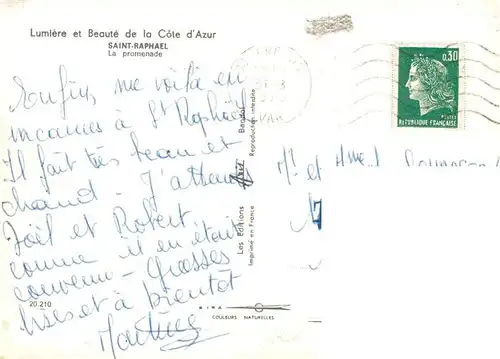 Lumière et Beauté de la Côte d'Azur
SAINT-RAPHAEL
La promenade
Enfin, me voilà en
vacances à St Raphaël
Il fait très beau et
chaud - J'attends
Joël et Robert
comme il en était
convenu - Grosses
bises et à bientôt
Martine
20.210
Les Editions Aris Bandol
Imprimé en France Reproduction interdite
MIRA
COULEURS NATURELLES
VAR
0,30
POSTES
REPUBLIQUE FRANÇAISE
Mr et Mme